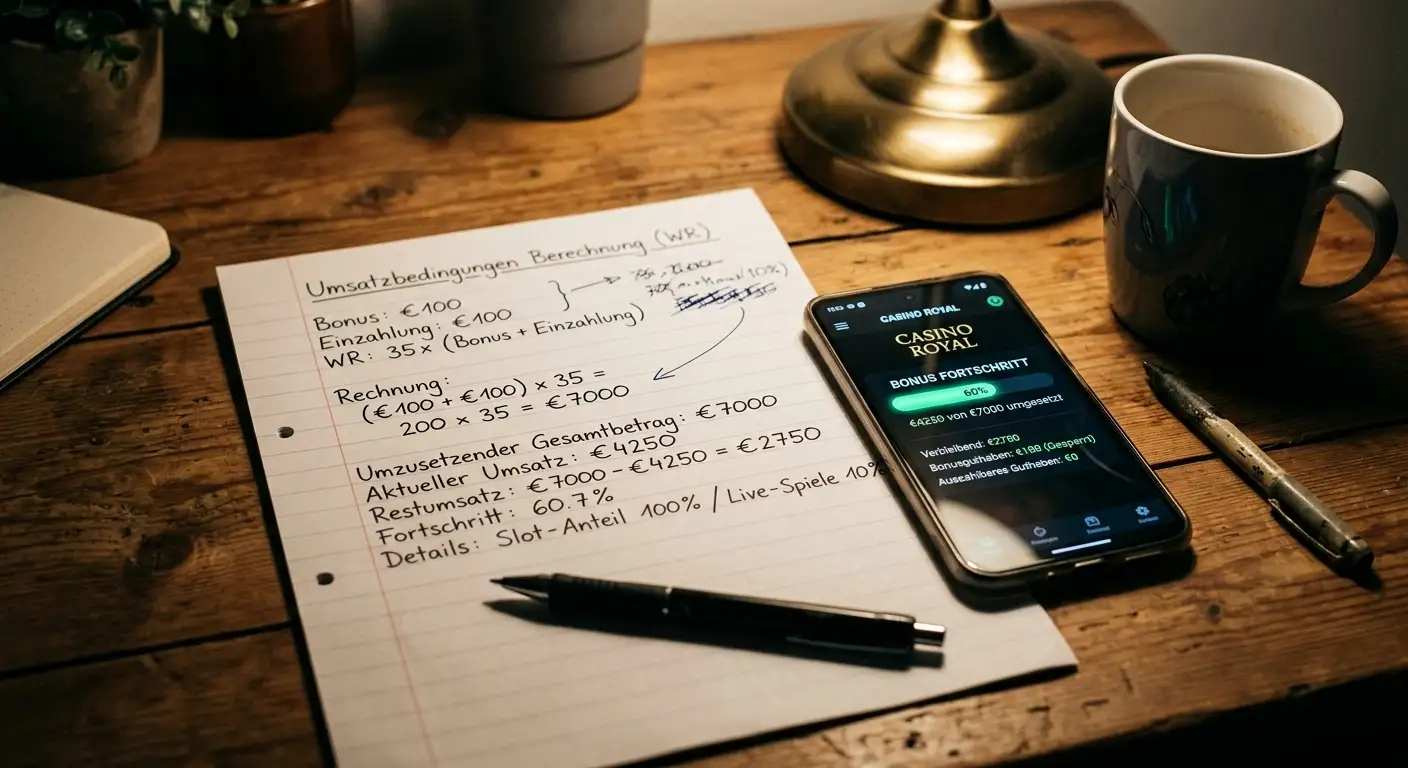 Umsatzbedingungen Berechnung (WR)
Bonus: €100
Einzahlung: €100
WR: 35× (Bonus + Einzahlung)
Rechnung:
(€100 + €100) × 35 =
200 × 35 = €7000
Umzusetzender Gesamtbetrag: €7000
Aktueller Umsatz: €4250
Restumsatz: €7000 - €4250 = €2750
Fortschritt: 60.7%
Details: Slot-Anteil 100% / Live-Spiele 10%
CASINO ROYAL
CASINO
ROYAL
BONUS FORTSCHRITT
60%
€4250 von €7000 umgesetzt
Verbleibend: